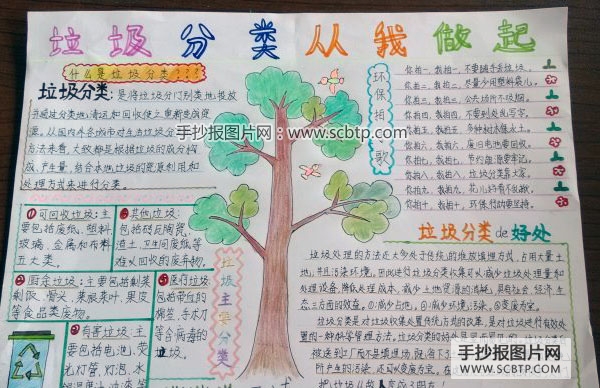 垃圾分类从我做起
什么是垃圾分类???
垃圾分类:是将垃圾分门别类地投放
并通过分类地清运和回收使之重新变成资
源。从国内外各城市对生活垃圾分类的
方法来看,大致都是根据垃圾的成分构
成、产生量,结合本地垃圾的资源利用和
处理方式来进行分类。
①可回收垃圾:主
要包括废纸、塑料
玻璃、金属和布料
五大类。
其他垃圾:
包括砖瓦陶瓷、
渣土、卫生间废纸等
难以回收的废弃物。
厨余垃圾:主要包括剩菜
剩饭、骨头、菜根菜叶、果皮
等食品类废物。
医疗垃圾
包括带血的
棉签、手术刀
等含病毒的
垃圾
有害垃圾:主
要包括电池、荧
光灯管、灯泡、水
垃圾主要分类
手抄报图片网:www.scbtp.com
环保拍手歌
你拍一,我拍一,不要随手丢垃圾。
你拍二,我拍二,尽量少用塑料袋儿。
你拍三,我拍三,公共场所不吸烟。
你拍四,我拍四,不要到处乱写字。
你拍五,我拍五,多种树木保水土。
你拍六,我拍六,废旧电池要回收。
你拍七,我拍七,节约能源要牢记。
你拍八,我拍八,垃圾分类靠大家。
你拍九,我拍九,花儿好看不乱揪。
你拍十,我拍十,环保行动要坚持。
垃圾分类de好处
垃圾处理的方法还大多处于传统的堆放填埋方式,占用大量土
地,并且污染环境。因此进行垃圾分类收集可以减少垃圾处理量和
处理设备,降低处理成本,减少土地资源的消耗,具有社会、经济、生
态三方面的效益。①减少占地。②减少环境污染。③变废为宝。
垃圾分类是对垃圾收集处置传统方式的改革,是对垃圾进行有效处置
的一种科学管理方法。
手抄报图片网
WWW.SCBTP.COM